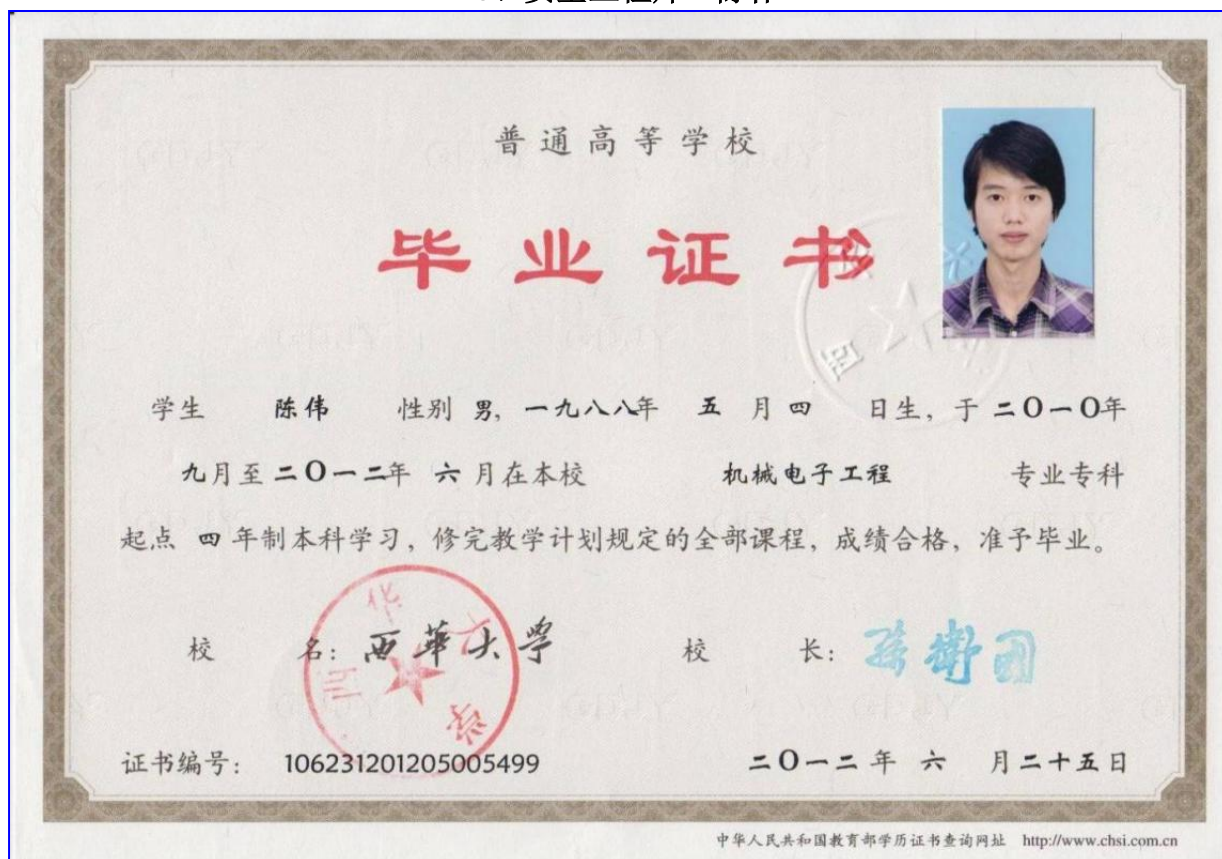 普通高等学校
毕业证书
学生 陈伟 性别 男, 一九八八年 五 月 四 日生, 于 二〇一〇年
九月至 二〇一二年 六 月在本校 机械电子工程 专业专科
起点 四 年制本科学习, 修完教学计划规定的全部课程, 成绩合格, 准予毕业。
校 名: 西华大学 校 长: 孙卫国
证书编号: 106231201205005499 二〇一二年 六 月二十五日
中华人民共和国教育部学历证书查询网址 http://www.chsi.com.cn